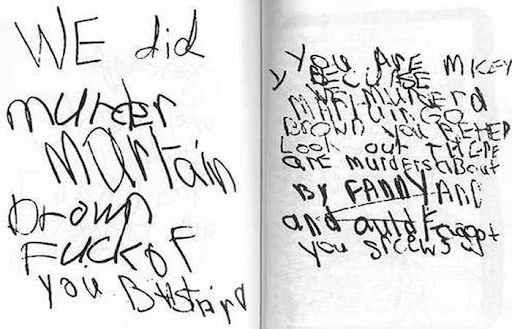 WE did
murder
martain
brown
Fuckof
you BAstard
you ARE MICEY
y BECUSE
WE murderd
MARTAIN GO
BROWN you BETTER
Look out THERE
are MURDERS aBout
By FANNY AND
and auld Faggot
you srcews